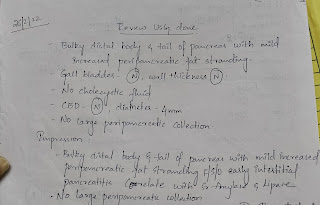 26/2/22
Review USG done
- Bulky distal body & tail of pancreas with mild
increased peripancreatic fat stranding
- Gall bladder - (N), wall thickness (N)
- No cholecystic fluid
- CBD - (N), diameter - 4mm
- No large peripancreatic collection
Impression
- Bulky distal body & tail of pancreas with mild increased
peripancreatic fat stranding F/S/O early Interstitial
pancreatitis Correlate with Sr Amylase & Lipase
- No large peripancreatic collection